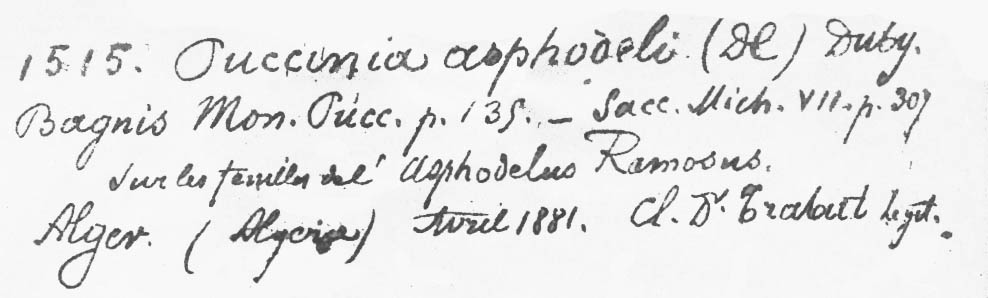 1515. Puccinia asphodeli (DC) Duby.
Bagnis Mon. Pucc. p. 135. — Sacc. Mich. VII. p. 307
sur les feuilles de l' Asphodelus Ramosus.
Alger. (Algeria) Avril 1881. Cl. Dr Trabut legit.